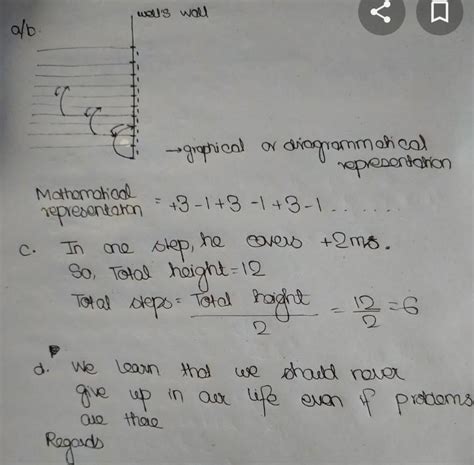 well's wall
a/b.
→ graphical or diagrammatical
representation
Mathematical
representation = +3-1+3-1+3-1......
c. In one step, he covers +2ms.
So, Total height=12
Total steps = Total height / 2 = 12/2 = 6
d. We learn that we should never
give up in our life even if problems
are there
Regards